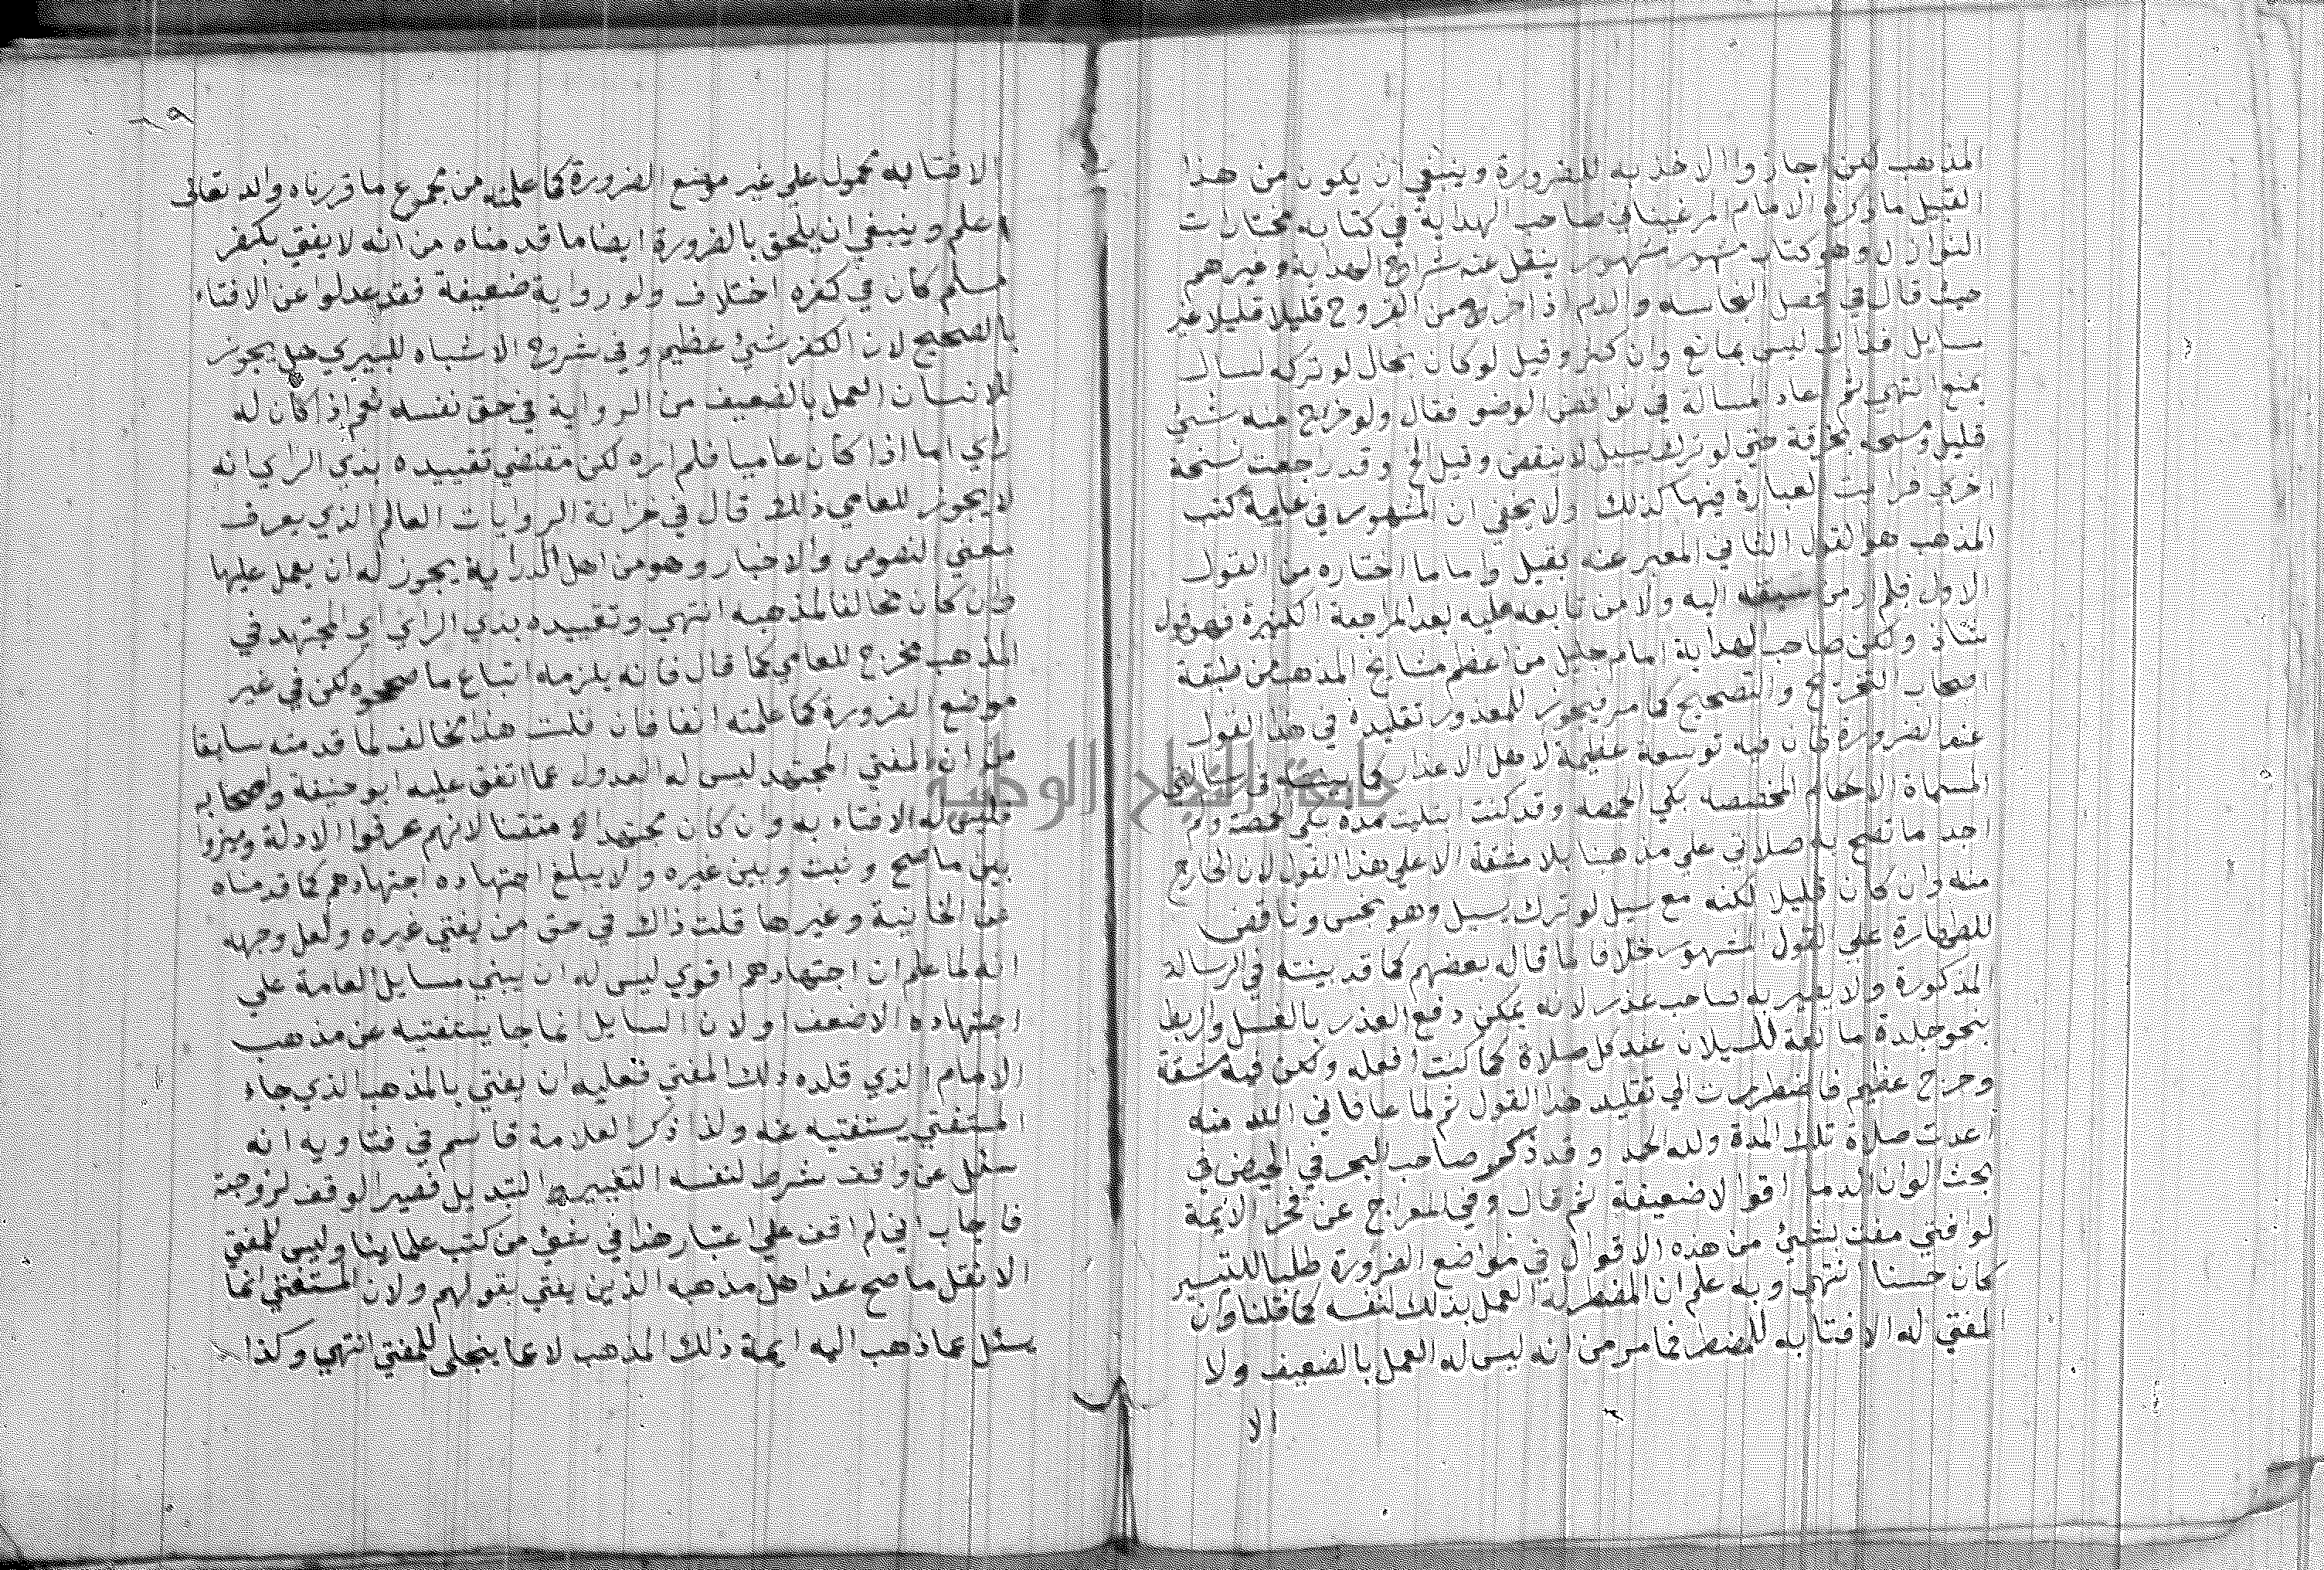 المذهب لكن اجازوا الاخذ به للضرورة وينبغي ان يكون من هذا
القبيل ماذكره الامام المرغيناني صاحب الهداية في كتابه مختارات
النوازل وهو كتاب مشهور ينقل عنه شراح الهداية وغيرهم
حيث قال في فصل النجاسه والدم اذا خرج من القروح قليلا قليلا غير
سايل فذاك ليس بمانع وان كثر وقيل لو كان بحال لو تركه لسال
يمنع انتهي ثم اعاد المسالة في نواقض الوضو فقال ولو خرج منه شيئ
قليل ومسحه بخرقة حتي لو ترك يسيل لا ينقض وقيل الخ وقد راجعت نسخة
اخري فرايت العبارة فيها كذلك ولا يخفي ان المشهور في عامة كتب
المذهب هو القول الثاني المعبر عنه بقيل واما ما اختاره من القول
الاول فلم ار من سبقه اليه ولا من تابعه عليه بعد المراجعة الكثيرة فهو قول
شاذ ولكن صاحب الهداية امام جليل من اعظم مشايخ المذهب من طبقة
اصحاب التخريج والتصحيح كما مر فيجوز للمعذور تقليده في هذا القول
عند الضرورة فان فيه توسعة عظيمة لاهل الاعذار كما بينته في رسالتي
المسماة الاحكام المخصصه بكي الحمصه وقد كنت ابتليت مدة بكي الحمصة ولم
اجد ما تصح به صلاتي علي مذهبنا بلا مشقة الا علي هذا القول لان الخارج
منه وان كان قليلا لكنه مع سيل لو ترك يسيل وهو نجس وناقض
للطهارة علي القول المشهور خلافا لما قاله بعضهم كما قد بينته في الرسالة
المذكورة ولا يصير به صاحب عذر لانه يمكن دفع العذر بالغسل والربط
بنحو جلدة مانعة للسيلان عند كل صلاة كما كنت افعله ولكن فيه مشقة
وحرج عظيم فاضطررت الي تقليد هذا القول ثم لما عافاني الله منه
اعدت صلاة تلك المدة ولله الحمد وقد ذكر صاحب البحر في الحيض في
بحث الوان الدما اقوالا ضعيفة ثم قال وفي المعراج عن فخر الائمة
لو افتي مفت بشيئ من هذه الاقوال في مواضع الضرورة طلبا للتيسير
كان حسنا انتهي وبه علم ان المضطر له العمل بذلك لنفسه كما قلنا وان
المفتي له الافتا به للمضطر فما مر من انه ليس له العمل بالضعيف ولا
الا
الافتا به محمول علي غير موضع الضرورة كما علمته من مجموع ما قررناه والله تعالى
اعلم وينبغي ان يلحق بالضرورة ايضا ما قدمناه من انه لا يفتي بكفر
مسلم كان في كفره اختلاف ولو رواية ضعيفة فقد عدلوا عن الافتاء
بالصحيح لان الكفر شيئ عظيم وفي شروح الاشباه للبيري هل يجوز
للانسان العمل بالضعيف من الرواية في حق نفسه نعم اذا كان له
راي اما اذا كان عاميا فلم اره لكن مقتضي تقييده بذي الراي انه
لا يجوز للعامي ذلك قال في خزانة الروايات العالم الذي يعرف
معني النصوص والاخبار وهو من اهل الدراية يجوز له ان يعمل عليها
وان كان مخالفا لمذهبه انتهي وتقييده بذي الراي اي المجتهد في
المذهب مخرج للعامي كما قال فانه يلزمه اتباع ما صححوه لكن في غير
موضع الضرورة كما علمته انفا فان قلت هذا مخالف لما قدمته سابقا
من ان المفتي المجتهد ليس له العدول عما اتفق عليه ابو حنيفة واصحابه
فليس له الافتاء به وان كان مجتهدا متقنا لانهم عرفوا الادلة وميزوا
بين ما صح وثبت وبين غيره ولا يبلغ اجتهاده اجتهادهم كما قدمناه
عن الخانية وغيرها قلت ذاك في حق من يفتي غيره ولعل وجهه
انه لما علم ان اجتهادهم اقوي ليس له ان يبني مسايل العامة علي
اجتهاده الاضعف او لان السايل انما جا يستفتيه عن مذهب
الامام الذي قلده ذلك المفتي فعليه ان يفتي بالمذهب الذي جاء
المستفتي يستفتيه عنه ولذا ذكر العلامة قاسم في فتاويه انه
سئل عن واقف شرط لنفسه التغيير والتبديل فصير الوقف لزوجته
فاجاب اني لم اقف علي اعتبار هذا في شيئ من كتب علماينا وليس للمفتي
الا نقل ما صح عند اهل مذهبه الذين يفتي بقولهم ولان المستفتي انما
يسئل عما ذهب اليه ايمة ذلك المذهب لا عما ينجلي للمفتي انتهي وكذا
جامعة النجاح الوطنية